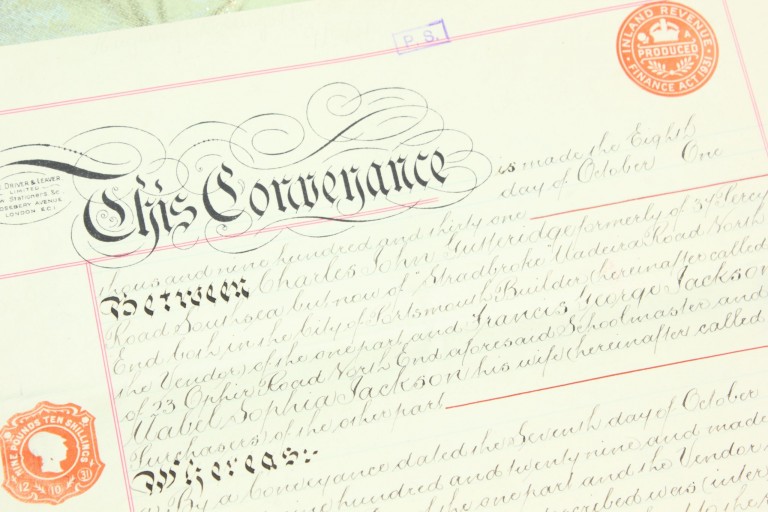 P. S.
INLAND REVENUE
PRODUCED
FINANCE ACT 1931
DRIVER & LEAVER
LIMITED
Stationers, &c.
ROSEBERY AVENUE
LONDON, E.C.1
This Conveyance is made the Eighth
day of October One
thousand nine hundred and thirty one
Between Charles John Gutteridge formerly of 37 Percy
Road Southsea but now of "Stradbroke" Madeira Road North
End both in the City of Portsmouth Builder (hereinafter called
the Vendor) of the one part and Francis George Jackson
of 23 Ophir Road North End aforesaid Schoolmaster and
Mabel Sophia Jackson his wife (hereinafter called
Purchasers) of the other part
Whereas:-
By a Conveyance dated the Seventh day of October
nine hundred and twenty nine and made
of the one part and the Vendor
described was (inter
NINE POUNDS TEN SHILLINGS
12 10 31